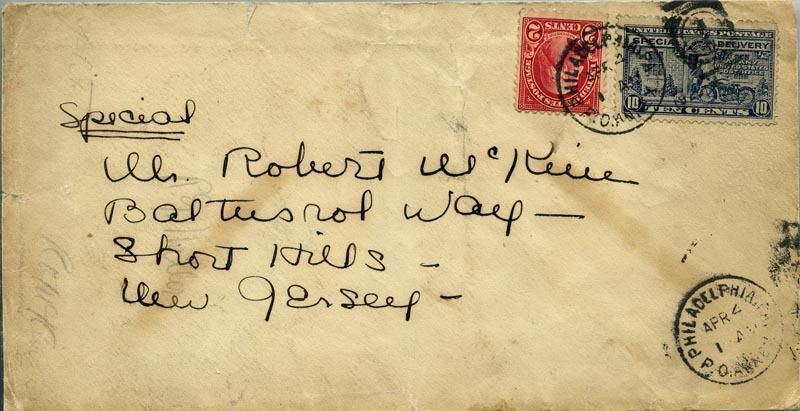 2 CENTS 2
UNITED STATES POSTAGE
UNITED STATES POSTAGE
SPECIAL DELIVERY
AT ANY UNITED STATES POST OFFICE
10 TEN CENTS 10
PHILADELPHIA
Special
Mr. Robert McKim
Baltusrol Way —
Short Hills —
New Jersey —
PHILADELPHIA, PA.
APR 4
1 AM
P.O. ANNEX